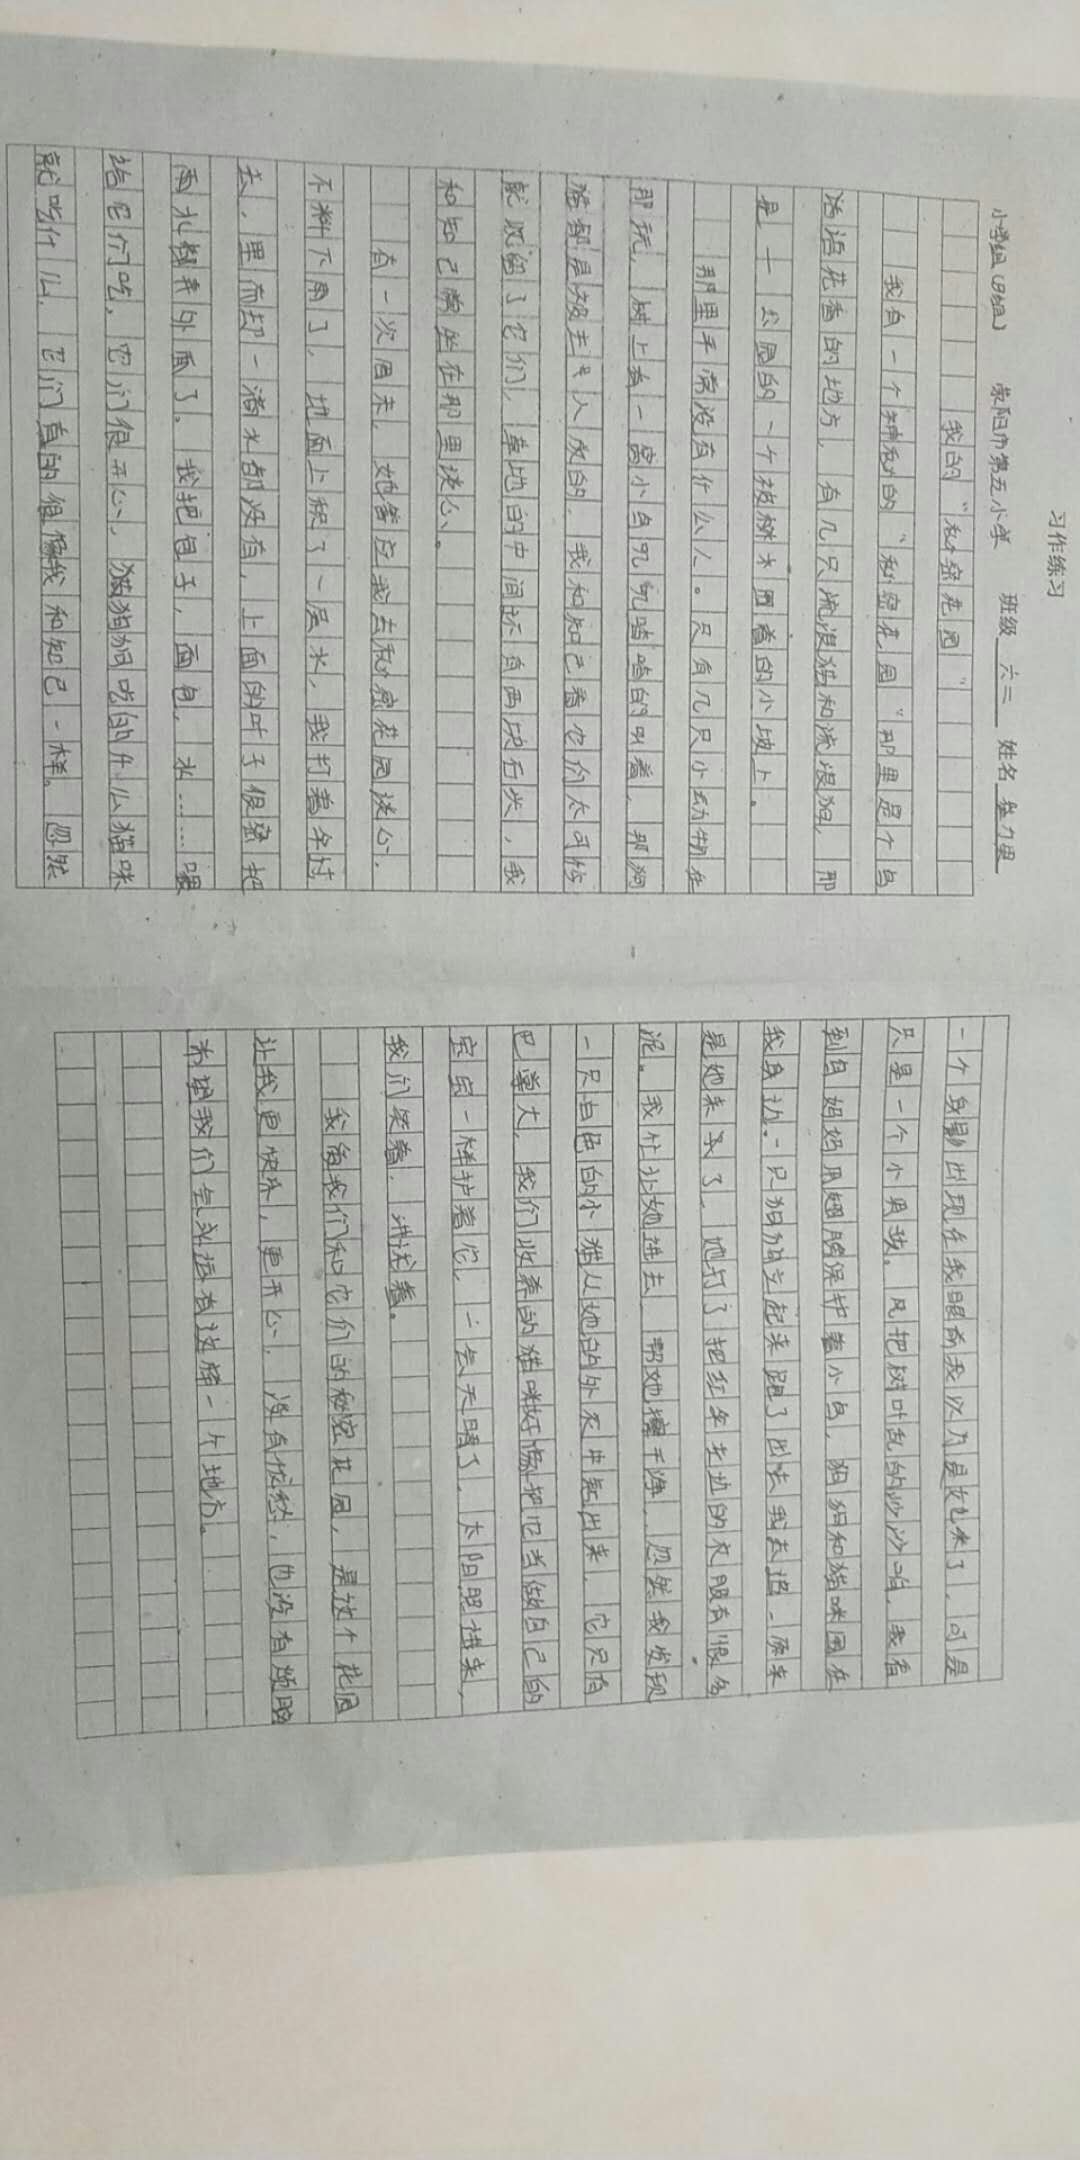 习作练习
小学组(B组) 荥阳市第五小学 班级 六三 姓名
我的“秘密花园”
我有一个神秘的“秘密花园”那里是个鸟
语花香的地方,有几只流浪猫和流浪狗,那
是一公园的一个被树木围着的小坡上。
那里平常没有什么人。只有几只小动物在
那玩,树上有一窝小鸟叽叽喳喳的叫着,那狗
猫都是被主人放的,我和知己看它们太可怜
就收留了它们,草地的中间还有两块石头,我
和知己常坐在那里谈心。
有一次周末,她答应我去秘密花园谈心,
不料下雨了,地面上积了一层水,我打着伞过
去,里面却一滴水都没有,上面的叶子很密把
雨水都弄外面了。我把包子,面包,水……喂
给它们吃,它们很开心,猫狗狗吃的什么猫咪
就吃什么,它们真的很像我和知己一样。忽然
一个身影出现在我眼前我以为是她来了,可是
只是一个小男孩。风把树叶乱的沙沙响,我看
到鸟妈妈用翅膀保护着小鸟,狗狗和猫咪围在
我身边。一只狗狗立起来跑了出去我去追,原来
是她来了,她打了把红伞 的衣服有很多
泥。我忙让她进去,帮她擦干净,忽然我发现
一只白色的小猫从她的外衣中钻出来,它只有
巴掌大,我们收养的猫咪好像把它当做自己的
宝宝一样护着它,一会天晴了,太阳照进来,
我们笑着,讲述着。
我 我们和它们的秘密花园,是这个花园
让我更快乐,更开心,没有忧愁,也没有烦恼
希望我们 有这样一个地方。